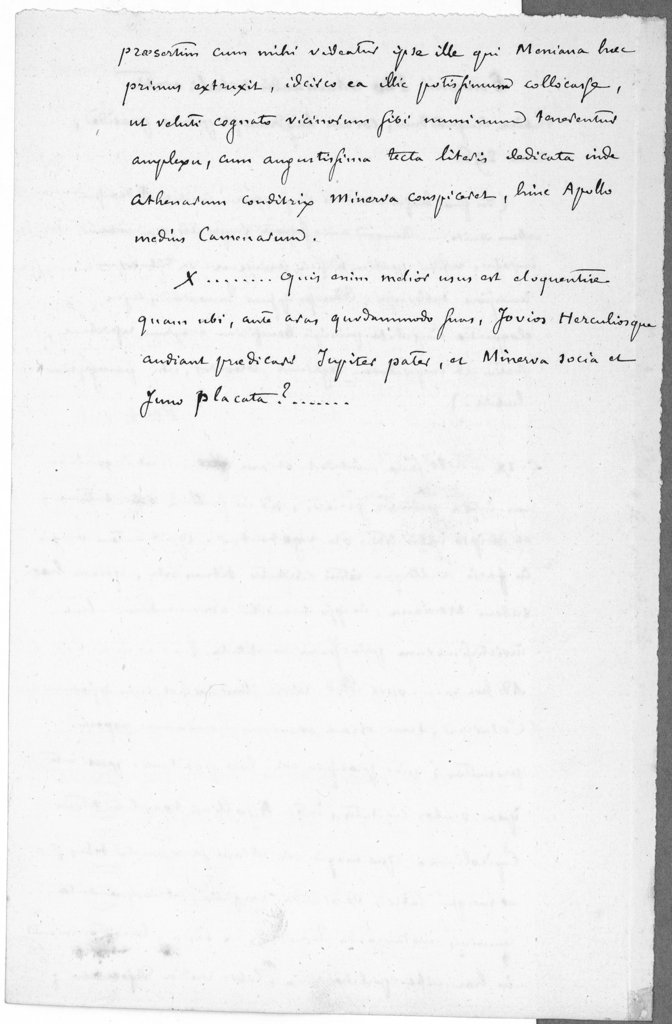 præsertim cum mihi videatur ipse ille qui Meniana hæc
primus extruxit, idcirco ea illic potissimum collocasse,
ut veluti cognato vicinorum sibi numinum tenerentur
amplexu, cum angustissima tecta literis dedicata inde
Athenarum conditrix Minerva conspiceret, hinc Apollo
medius Camenarum.
X ........ Quis enim melior usus est eloquentiæ
quam ubi, ante aras quodammodo suas, Jovios Herculiosque
audiant prædicari Jupiter pater, et Minerva socia et
Juno placata? .......